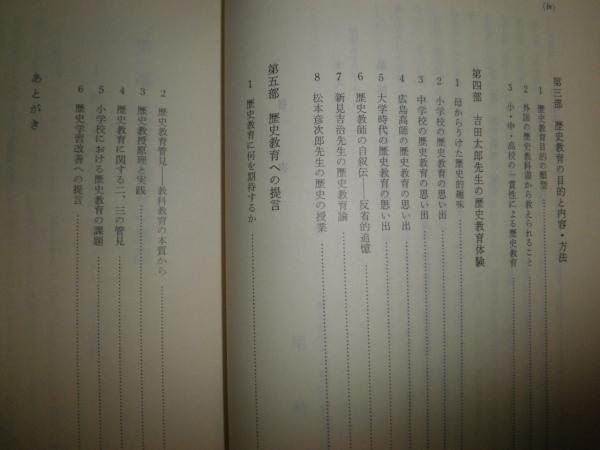 (iv)
第三部 歴史教育の目的と内容・方法
1 歴史教育目的の類型
2 外国の歴史教科書から教えられること
3 小・中・高校の一貫性による歴史教育
第四部 吉田太郎先生の歴史教育体験
1 母からうけた歴史的趣味
2 小学校の歴史教育の思い出
3 中学校の歴史教育の思い出
4 広島高師の歴史教育の思い出
5 大学時代の歴史教育の思い出
6 歴史教師の自叙伝――反省的追憶
7 新見吉治先生の歴史教育論
8 松本彦次郎先生の歴史の授業
第五部 歴史教育への提言
1 歴史教育に何を期待するか
2 歴史教育管見――教科教育の本質から
3 歴史教授原理と実践
4 歴史教育に関する二、三の管見
5 小学校における歴史教育の課題
6 歴史学習改善への提言
あとがき